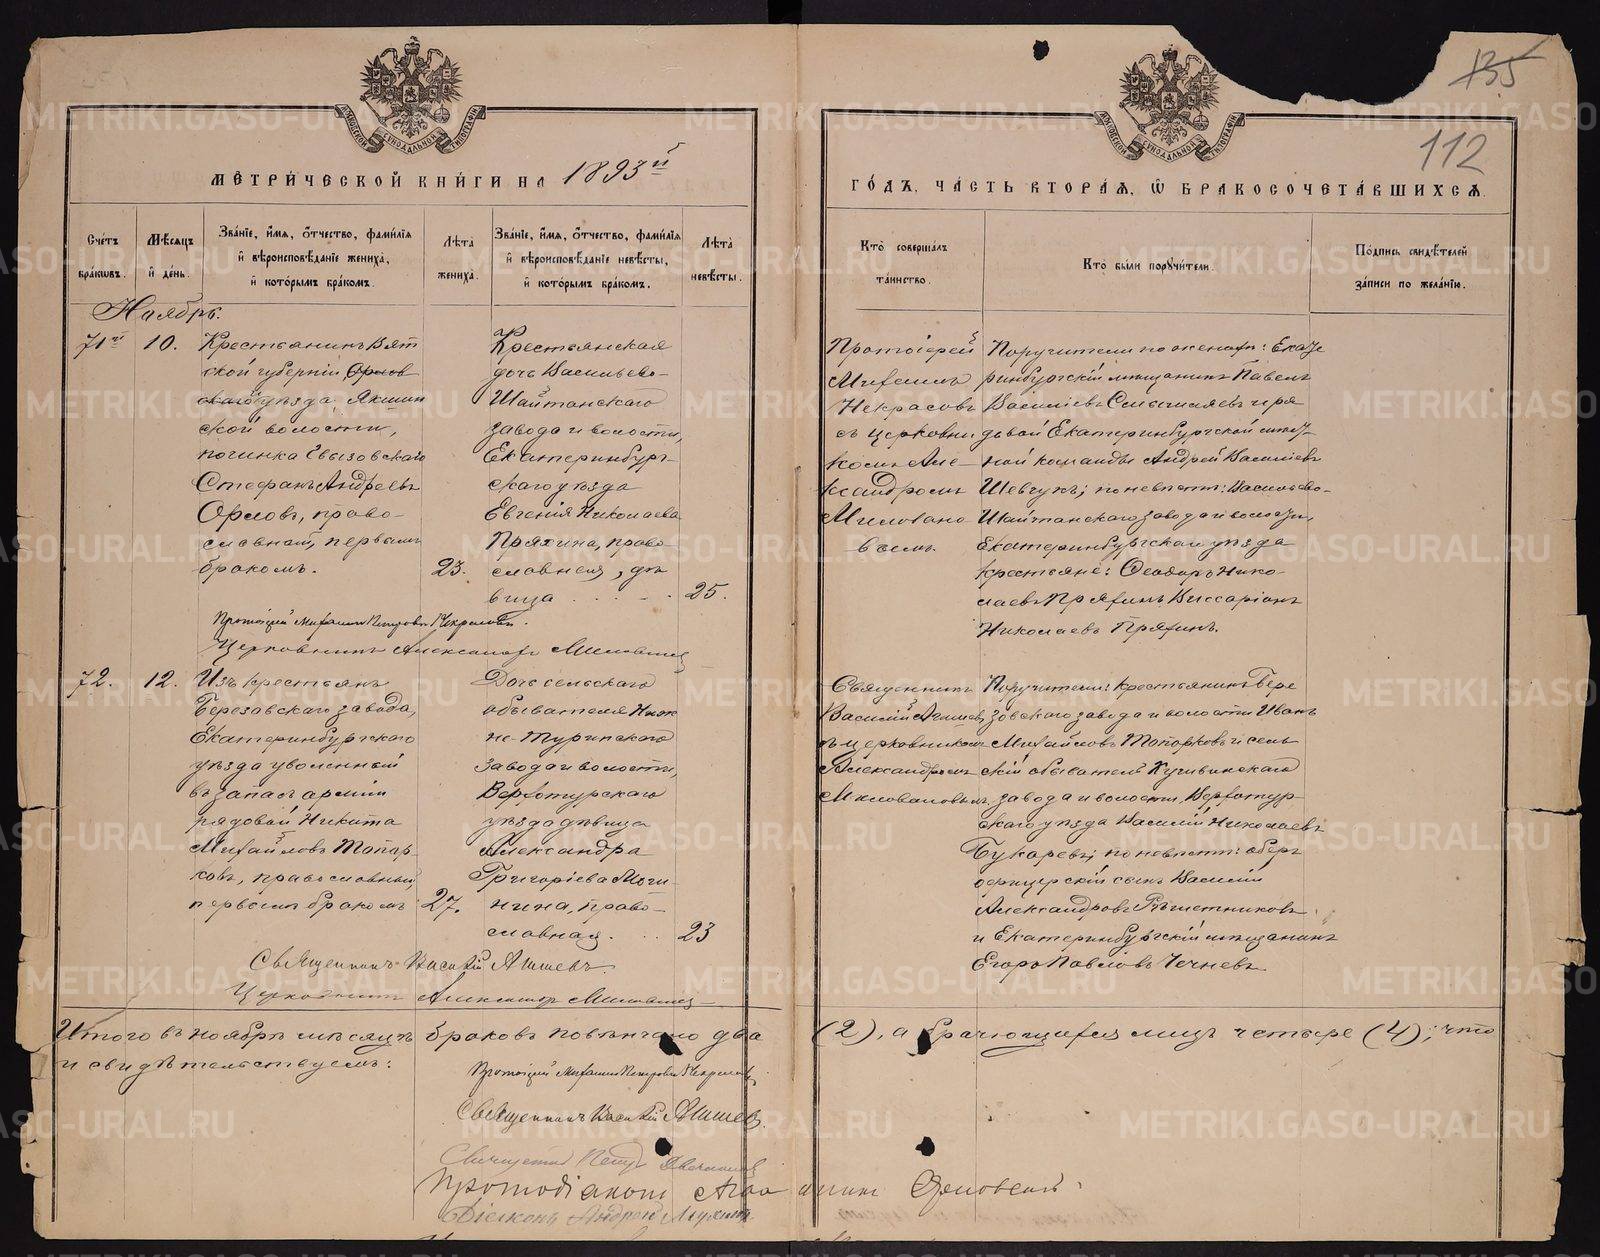 135
112
МЕТРИ́ЧЕСКОЙ КНИ́ГИ НА 1893й
ГО́ДЪ, ЧА́СТЬ ВТОРА́Я, Ѡ БРАКОСОЧЕТА́ВШИХСЯ.
Сче́тъ бра́ковъ.
Мѣ́сяцъ и́ де́нь.
Зва́нїе, и́мя, ѻ́тчество, фами́лїя и́ вѣроисповѣ́данїе жениха̀, и́ кото́рымъ бра́комъ.
Лѣ́та жениха̀.
Зва́нїе, и́мя, ѻ́тчество, фами́лїя и́ вѣроисповѣ́данїе невѣ́сты, и́ кото́рымъ бра́комъ.
Лѣ́та невѣ́сты.
Кто̀ соверша́лъ та́инство.
Кто̀ бы́ли порꙋчи́тели.
По́дпись свидѣ́телей за́писи по жела́нїю.
Ноябрь.
71й
10.
Крестьянинъ Вят
ской губерніи, Орлов
скаго уѣзда,
ской волости,
починка
Стефанъ Андреевъ
Орловъ, право-
славный, первымъ
бракомъ.
23.
Крестьянская
дочь Васильево-
Шайтанскаго
завода и волости,
Екатеринбург-
скаго уѣзда
Евгенія Николаева
Пряхина, право-
славная, дѣ-
вица
25.
Протоіерей
Михаилъ
Некрасовъ
съ церковни
комъ Але-
ксандромъ
Миловано-
вымъ.
Поручители по женихѣ: Екате
ринбургскій мѣщанинъ Павелъ
Васильевъ и ря
довой Екатеринбургской
ной команды Андрей Васильевъ
Шевчукъ; по невѣстѣ: Васильево-
Шайтанскаго завода и волости,
Екатеринбургскаго уѣзда
крестьяне: Ѳеодоръ Нико-
лаевъ Пряхинъ Виссаріонъ
Николаевъ Пряхинъ.
Протоіерей Михаилъ Петровъ Некрасовъ.
Церковникъ Александръ Миловановъ
72.
12.
Изъ крестьянъ
Березовскаго завода,
Екатеринбургскаго
уѣзда уволенный
въ запасъ арміи
рядовой Никита
Михайловъ Топор-
ковъ, православный,
первымъ бракомъ
27.
Дочь сельскаго
обывателя Ниж
не-Туринскаго
завода и волости,
Верхотурскаго
уѣзда дѣвица
Александра
Григоріева Моги-
нина, право-
славная.
23
Священникъ
Василій Агишевъ
съ церковникомъ
Александромъ
Миловановымъ.
Поручители: крестьянинъ Бере
зовскаго завода и волости Иванъ
Михайловъ Топорковъ и сель
скій обыватель Кушвинскаго
завода и волости, Верхотур-
скаго уѣзда Василій Николаевъ
Букаревъ; по невѣстѣ: оберъ
офицерскій сынъ Василій
Александровъ Рѣшетниковъ
и Екатеринбургскій мѣщанинъ
Егоръ Павловъ Чечневъ.
Священникъ Василій Агишевъ.
Церковникъ Александръ Миловановъ
Итого въ ноябрѣ мѣсяцѣ браковъ повѣнчано два (2), а брачющихся лицъ четыре (4); что
и свидѣтельствуемъ:
Протоіерей Михаилъ Петровъ Некрасовъ
Священникъ Василій Агишевъ.
Священникъ Петръ
Протодіаконъ
Діаконъ Андрей